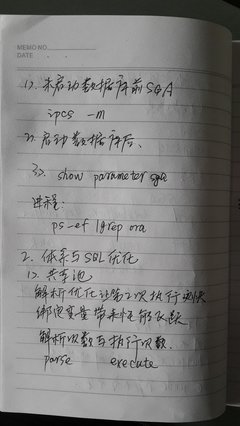 MEMO NO.
DATE
1). 未启动数据库前SGA
ipcs -m
2). 启动数据库后.
3). show parameter sga
进程:
ps -ef | grep ora
2. 体系与SQL优化
1). 共享池
解析优化让第2次执行更快
绑定变量带来性能飞跃
解析次数与执行次数.
parse execute